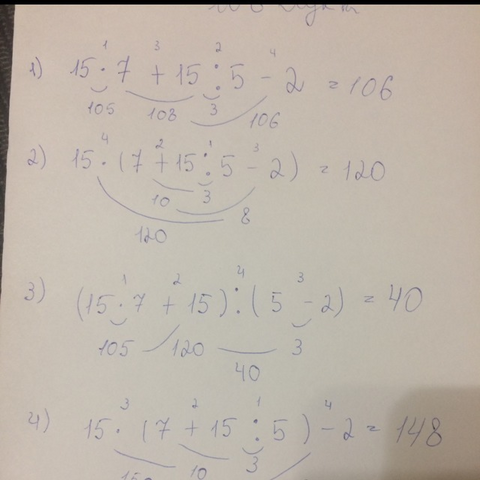 1 3 2 4
1) 15 · 7 + 15 : 5 - 2 = 106
105 108 3 106
4 2 1 3
2) 15 · (7 + 15 : 5 - 2) = 120
10 3
8
120
1 2 4 3
3) (15 · 7 + 15) : (5 - 2) = 40
105 120 3
40
3 2 1 4
4) 15 · (7 + 15 : 5) - 2 = 148
10 3